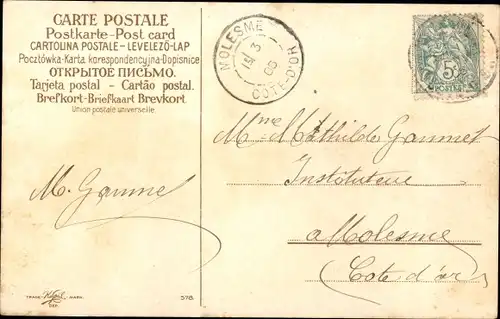 CARTE POSTALE
Postkarte-Post card
CARTOLINA POSTALE-LEVELEZŐ-LAP
Pocztówka-Karta korespondencyjna-Dopisnice
ОТКРЫТОЕ ПИСЬМО.
Tarjeta postal - Cartão postal.
Brefkort-Briefkaart Brevkort
Union postale universelle.
MOLESME
3
CÔTE-D'OR
5c
POSTES
Mme Mathilde Gaumet
Institutrice
à Molesme
Côte d'or
M. Gaumet
TRADE MARK
DEP.
378